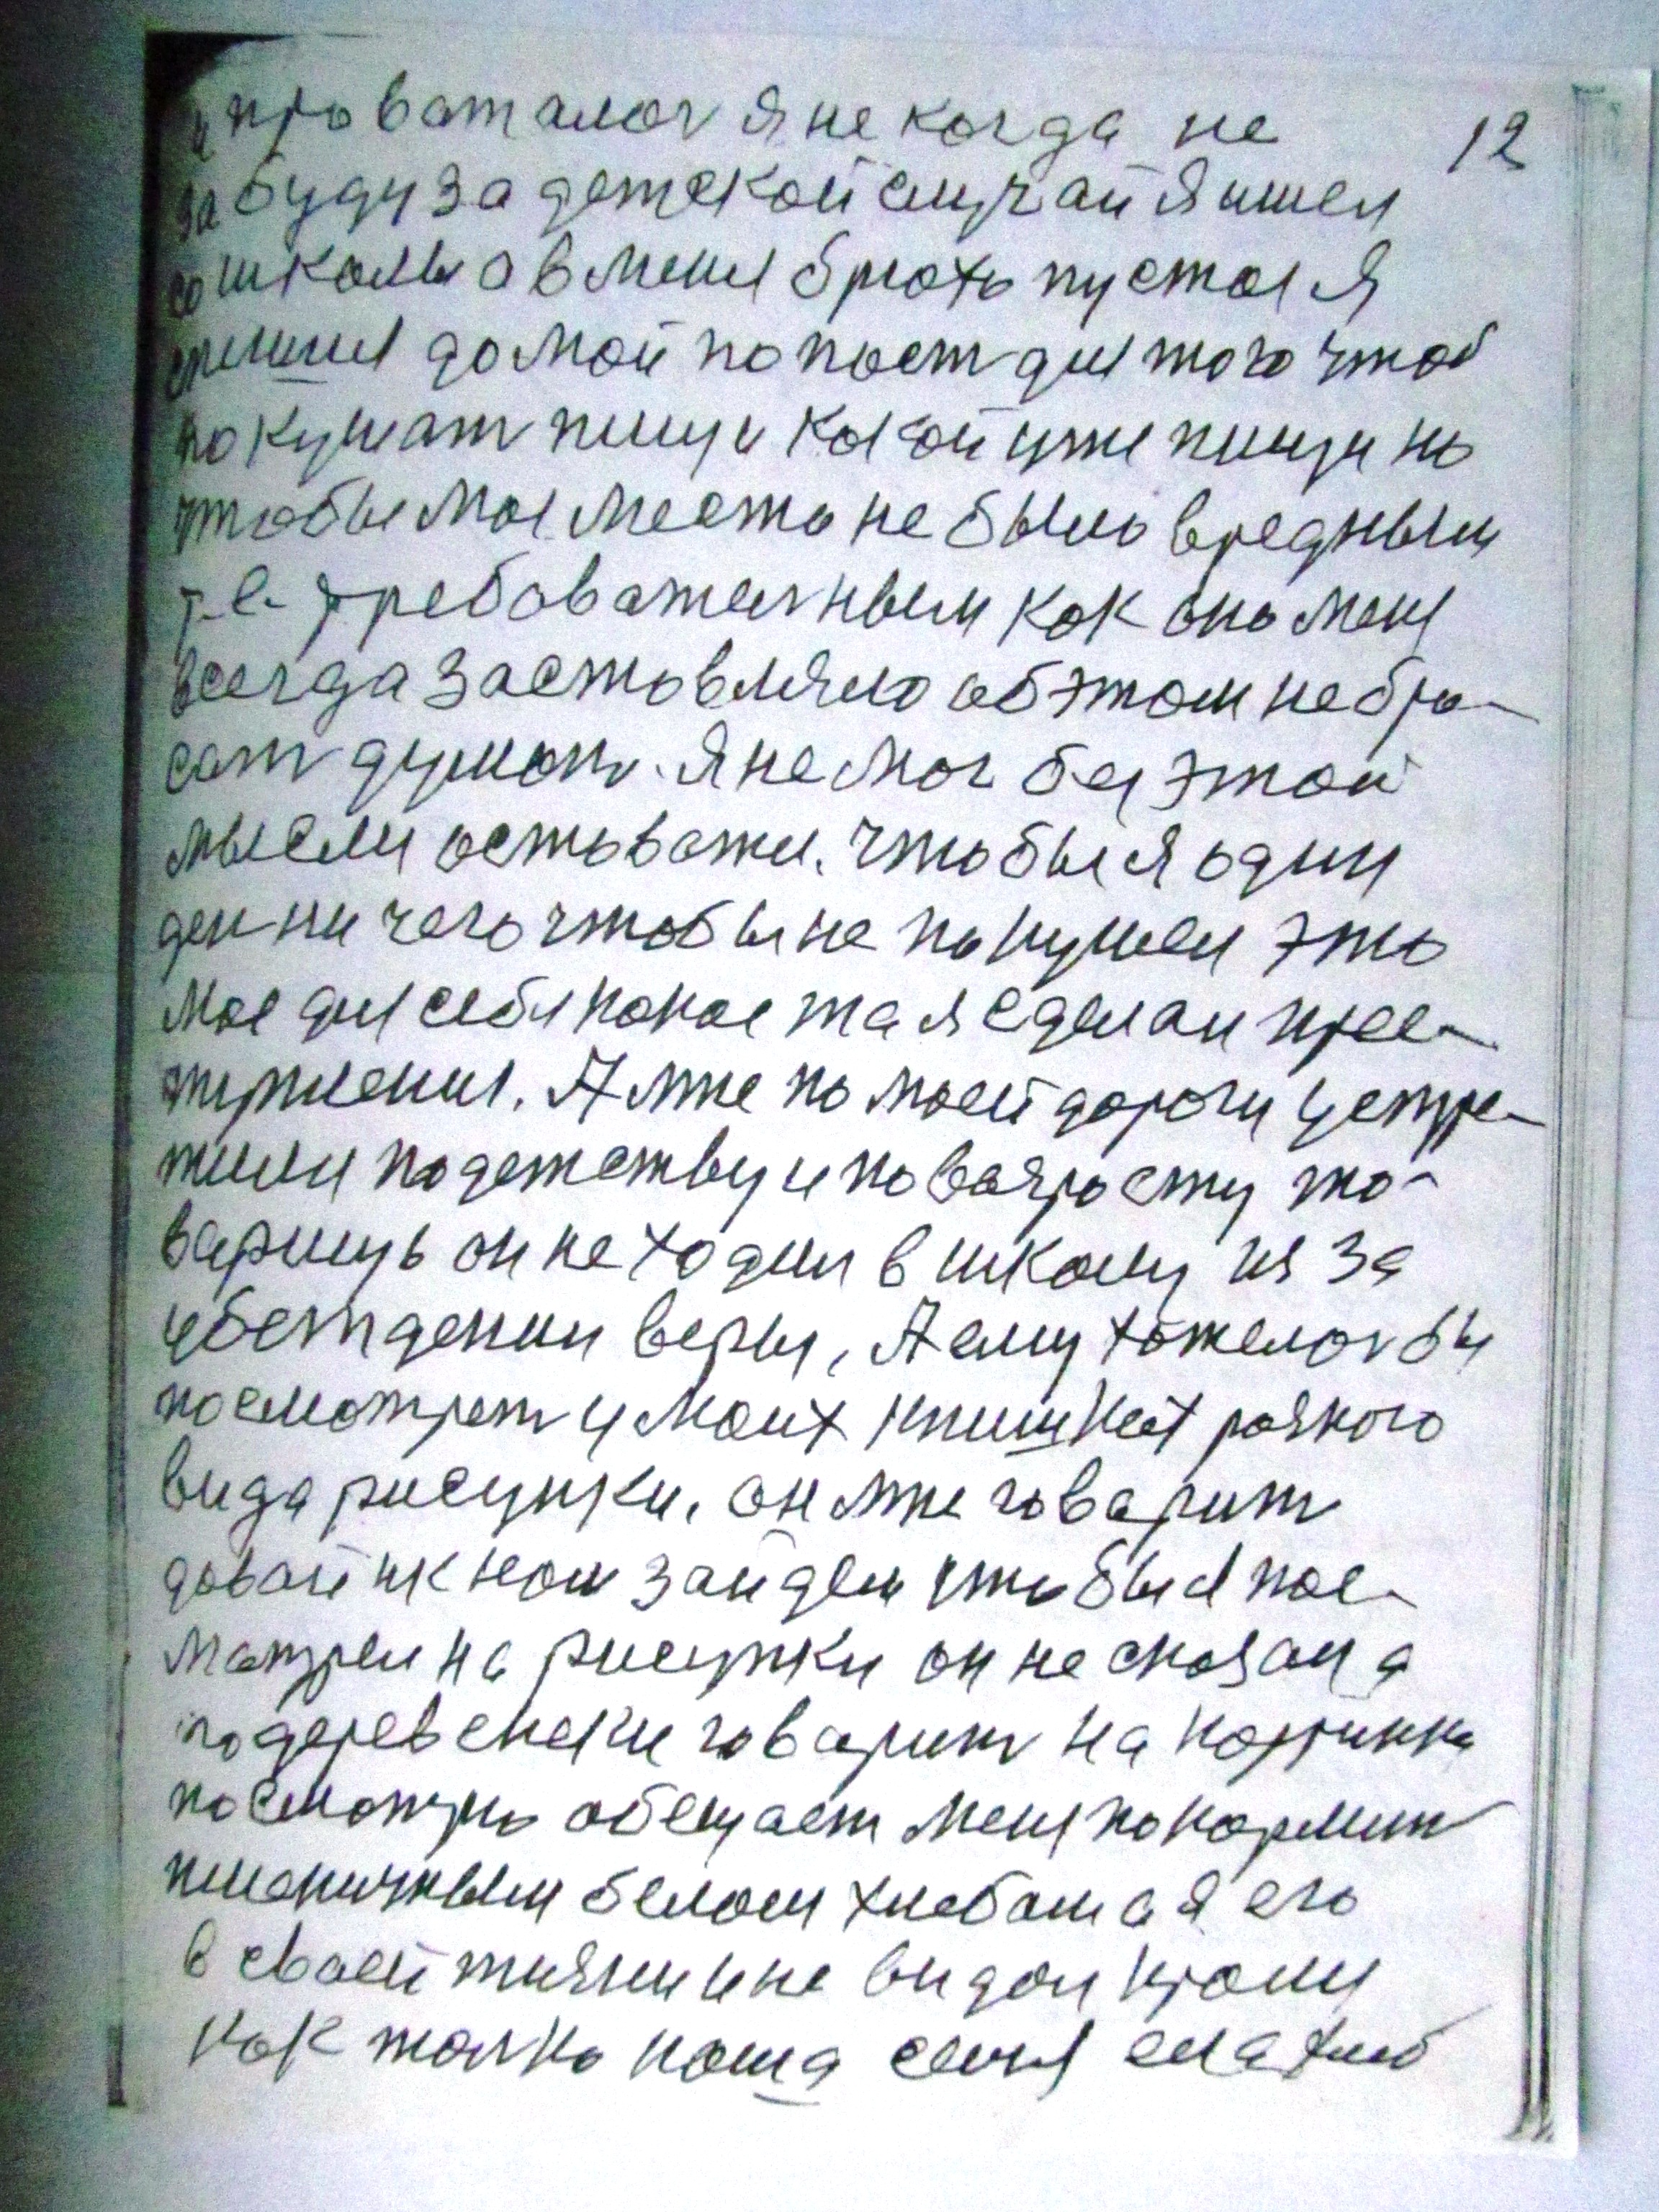 и проваталсь я не когда не 12
забуду за детской случай я ишел
со школы а в меня брюхо пустое я
спешил домой попост для того чтоб
покушат пищу какой уже пищи но
чтобы мое место не было вредным
т-е- требователным как оно меня
всегда заставляло об этом не бро-
сат думат. Я не мог без этой
мысли оставатся. чтобы я один
ден ни чего чтобы не покушел это
мое для себя покое та я сделал прес-
тупления. А мне по моей дороги устре-
тили подетству и по возросту то-
варищь он не ходил в школу из за
убеждении веры, А ему хотелось бы
посмотрет у моих книшках разного
вида рисунки. он мне говарит
довай ик ном зайдем чтобы я пос-
матрел на рисунки он не сказал а
подеревенски говарит на картинка
посмотрю обещает меня покормит
пшеничным белом хлебом а я его
в своей жизни и не видал кроми
как толко наша семя ела хлеб